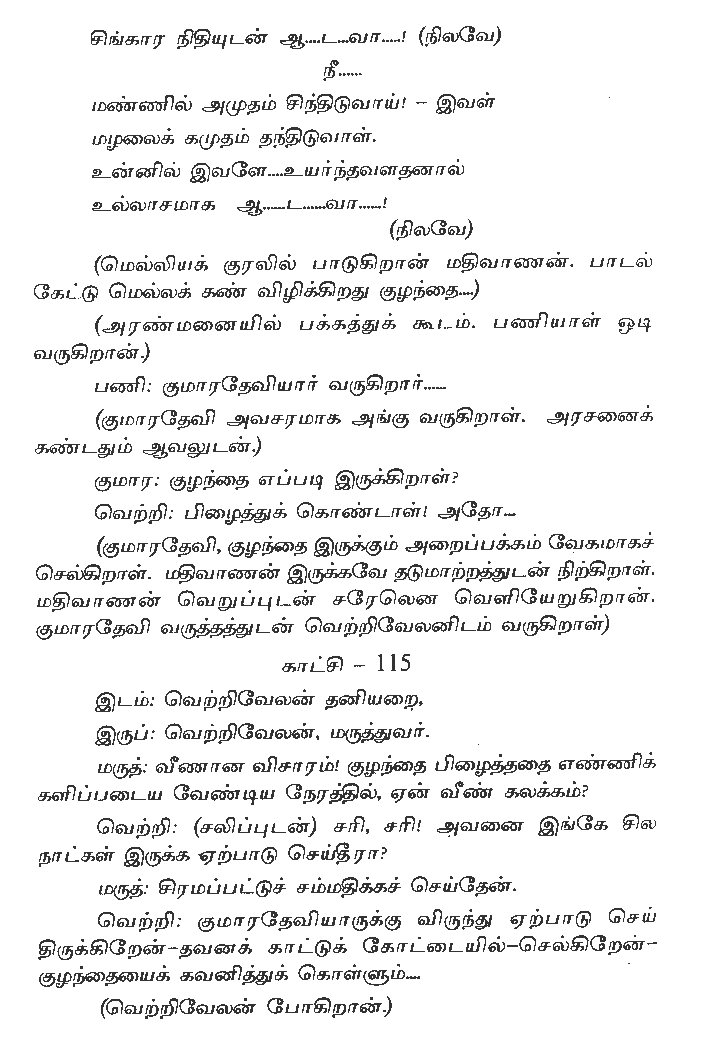 சிங்கார நிதியுடன் ஆ....ட...வா.....! (நிலவே)
நீ......
மண்ணில் அமுதம் சிந்திடுவாய்! - இவள்
மழலைக் கமுதம் தந்திடுவாள்.
உன்னில் இவளே....உயர்ந்தவளதனால்
உல்லாசமாக ஆ......ட......வா......!
(நிலவே)
(மெல்லியக் குரலில் பாடுகிறான் மதிவாணன். பாடல்
கேட்டு மெல்லக் கண் விழிக்கிறது குழந்தை....)
(அரண்மனையில் பக்கத்துக் கூடம். பணியாள் ஓடி
வருகிறான்.)
பணி: குமாரதேவியார் வருகிறார்......
(குமாரதேவி அவசரமாக அங்கு வருகிறாள். அரசனைக்
கண்டதும் ஆவலுடன்.)
குமார: குழந்தை எப்படி இருக்கிறாள்?
வெற்றி: பிழைத்துக் கொண்டாள்! அதோ...
(குமாரதேவி, குழந்தை இருக்கும் அறைப்பக்கம் வேகமாகச்
செல்கிறாள். மதிவாணன் இருக்கவே தடுமாற்றத்துடன் நிற்கிறாள்.
மதிவாணன் வெறுப்புடன் சரேலென வெளியேறுகிறான்.
குமாரதேவி வருத்தத்துடன் வெற்றிவேலனிடம் வருகிறாள்)
காட்சி - 115
இடம்: வெற்றிவேலன் தனியறை,
இருப்: வெற்றிவேலன், மருத்துவர்.
மருத்: வீணான விசாரம்! குழந்தை பிழைத்ததை எண்ணிக்
களிப்படைய வேண்டிய நேரத்தில், ஏன் வீண் கலக்கம்?
வெற்றி: (சலிப்புடன்) சரி, சரி! அவனை இங்கே சில
நாட்கள் இருக்க ஏற்பாடு செய்தீரா?
மருத்: சிரமப்பட்டுச் சம்மதிக்கச் செய்தேன்.
வெற்றி: குமாரதேவியாருக்கு விருந்து ஏற்பாடு செய்
திருக்கிறேன்-தவனக் காட்டுக் கோட்டையில்-செல்கிறேன்-
குழந்தையைக் கவனித்துக் கொள்ளும்....
(வெற்றிவேலன் போகிறான்.)